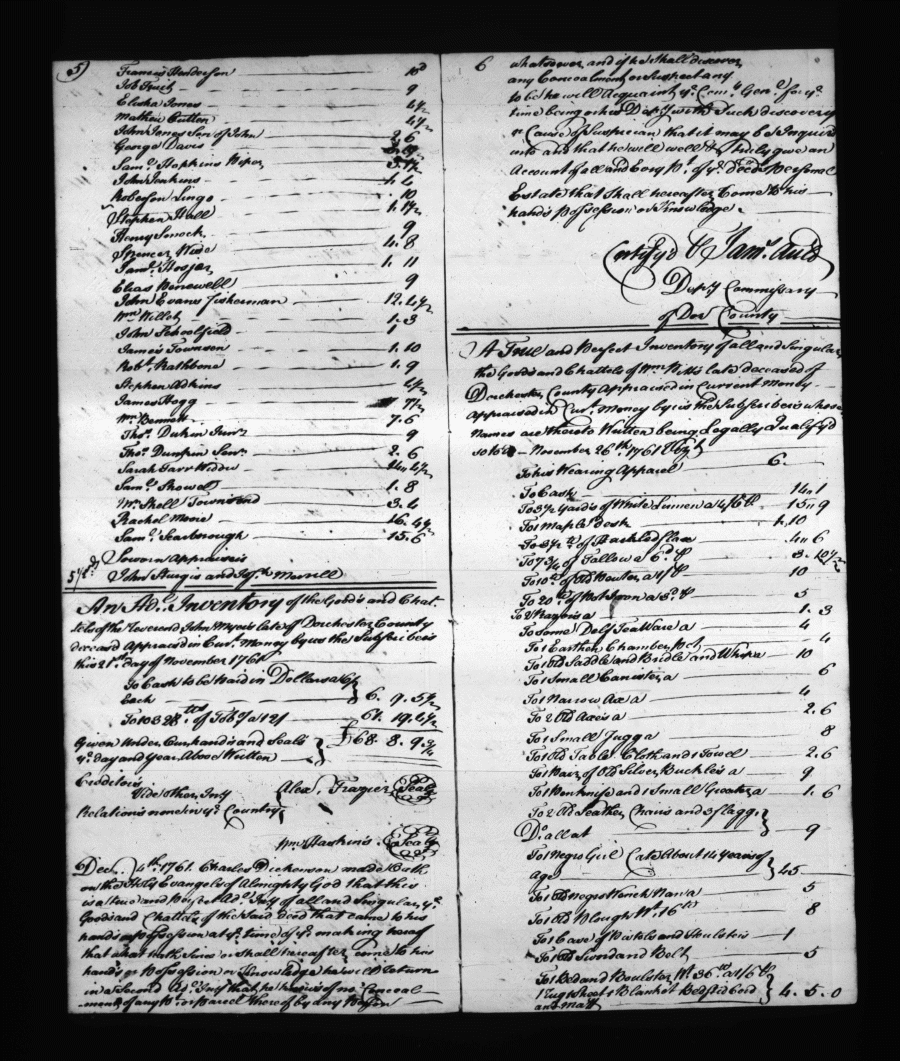 5)
Francis Henderson — 10d
Job Truit — 9
Elisha Jones — 4½
Mathew Cutton — 4½
John Jones Son of John — 2. 6
George Davis
Saml. Hopkins Piper
John Jenkins — 1. 6
Roberson Lingo — 10
Stephen Hall — 1. 1½
Henry Smock — 9
Spencer Wise — 4. 8
Saml. Hosjer — 1. 11
Elias Benewell — 9
John Evans fisherman — 12. 4½
Wm. Willet — 1. 3
John Schoolfield — 1
James Townsen — 1. 10
Robt. Rathbone — 1. 9
Stephen Adkins — 4½
James Hogg — 7½
Wm. Bennett — 7. 6
Thos. Dukin Junr. — 9
Thos. Dumpin Senr. — 2. 6
Sarah Carr Widdw
Saml. Showel — 1. 8
Wm. Skell Townsend — 3. 4
Rachel Moore — 16. 4½
Saml. Scarbrough — 15. 6
Sworn Appraisers
John Sturgis and Jos.h Merrill
An Adl. Inventory of the Goods and Chat-
tels of the Reverend John late of Dorchester County
deceasd Appraisd in Curt. Money by us the Subscribers
this 21st. day of November 1761
To Cash to be paid in Dollars a
Each — 6. 9. 5½
To of Tobo. a 12/ — 61. 19. 4½
£68. 8. 9¾
Given Under Our hands and Seals
ye. day and Year Above Written
Creditors
Vide other Invy
Relations none in ye. Country
Alex. Frazier (Seal)
Wm. Haskins (Seal)
Decr. 4th. 1761. Charles Dickenson made Oath
on the Holy Evangels of Almighty God that this
is a true and Perfect Adl. Invy of all and Singular, ye.
Goods and Chattels of the Said decd that came to his
hands or Possession at ye. time of ye. making hereof
that what hath Since or shall hereafter come to his
hands or Possession or Knowledge he will Return
in a Second Adl. Invy that he knows of no Conceal-
ment of any Pt. or Parcel thereof by any Person
6
whatsoever and if he Shall discover
any Concealment or Suspect any
to be he will Acquaint ye. Comy. Genl. for ye.
time being or his Depy with Such discovery
or Cause of Suspician that it may be Inquired
into and that he will well & truly give an
Account of all and Every Pt. of ye. decds Personal
Estate that Shall hereafter Come to his
hands Possession or Knowledge.
Certifyd ⅌ Jams. Auld
Depy Commissary
of Dor County
A True and Perfect Inventory of all and Singular
the Goods and Chattels of Wm. late deceased of
Dorchester County Appraised in Current Money
Appraised in Curt. Money by us the Subscribers whose
Names are thereto Written being Legally Qualifyd
so to do November 26th. 1761 Vizt
To his Wearing Apparel — 6.
To Cash — 14. 1
To 3½ Yards of White Linnen a 4/6 ⅌ — 15. 9
To 1 Maple Desk — 1. 10
To 3½ lb. of Hackled flax — 4. 6
To 7¾ of Tallow a 6d. ⅌ — 3. 10½
To 10 lb. of Old Pewter a 1/ ⅌ — 10
To 20 lb. of Pot Iron a 3d. ⅌ — 5
To 2 Razors a — 1. 3
To Some Delf Tea Ware a — 4
To 1 Earthen Chamber Pot — 4
To 1 Old Saddle and Bridle and Whip a — 10
To 1 Small Canester a — 6
To 1 Narrow Axe a — 4
To 2 Old Axes a — 2. 6
To 1 Small Jugg a — 8
To 1 Old Table Cloth and 1 Towel — 2. 6
To 1 Pair of Old Silver Buckles a — 9
To 1 Penknife and 1 Small Greater a — 1. 6
To 2 Old Leather Chairs and 3 flagg
Do. all at — 9
To 1 Negro Girl Cate About 14 Years of
Age — 45
To 1 Old Negro Wench Nan a — 5
To 1 Old Plough Wt. 16 lb — 8
To 1 Case of Pistols and Hulsters — 1
To 1 Old Sword and Belt — 5
To 1 Bed and Boulster Wt. 36 lb. a 1/6 ⅌
1 Rug 1 Sheet 1 Blanket Bedsted Cord
and Matt — 4. 5. 0